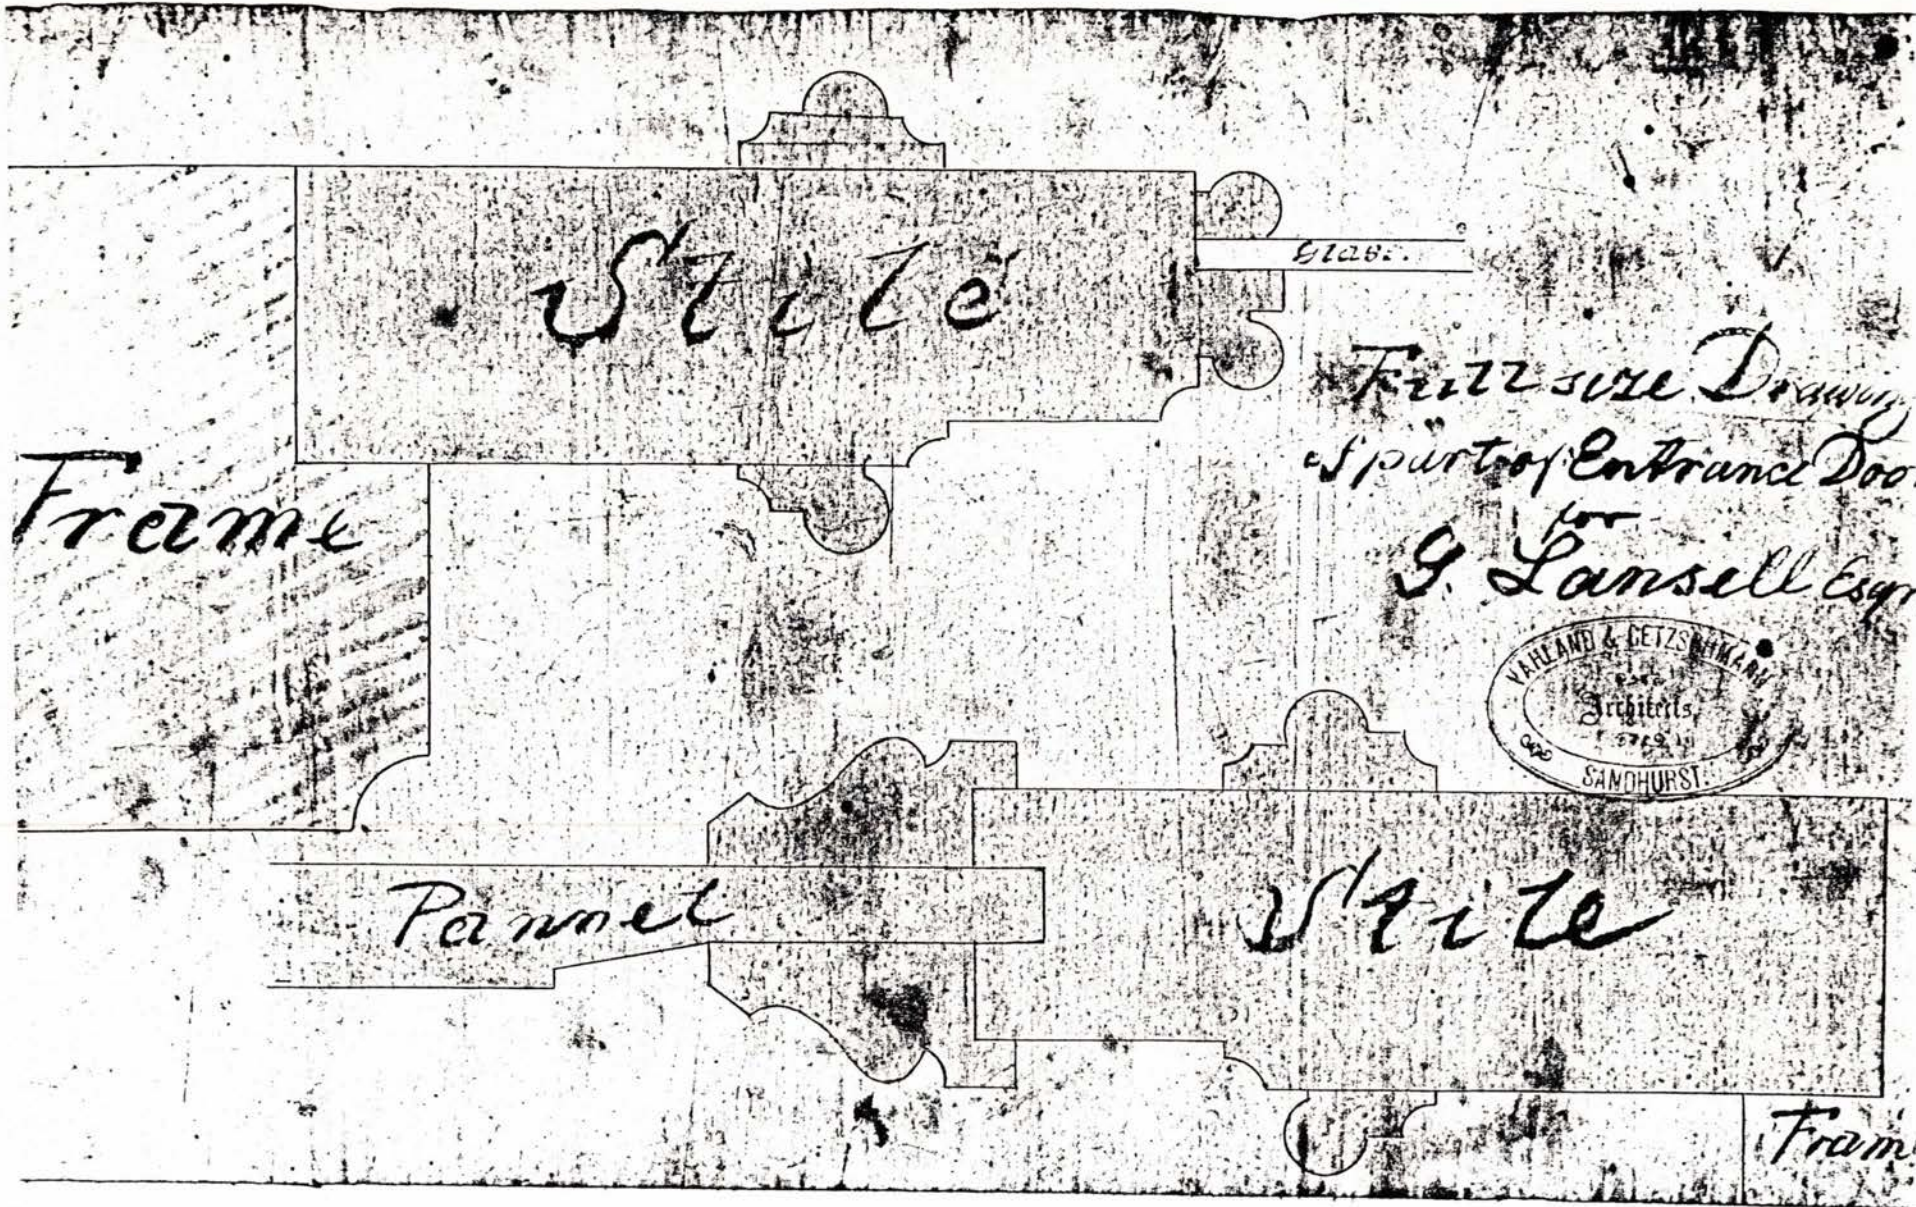 Stile
Glass.
Full size Drawing
of part of Entrance Doo
for
G. Lansell Esqr
Frame
VAHLAND & GETZSCHMANN
Architects,
SANDHURST.
Pannel
Stile
Fram